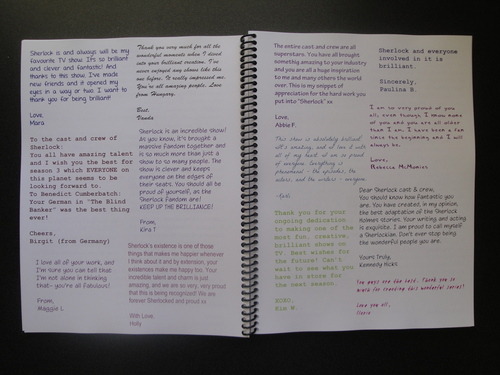 Sherlock is and always will be my
favourite TV show. It's so brilliant
and clever and fantastic! And
thanks to this show, I've made
new friends and it opened my
eyes in a way or two. I want to
thank you for being brilliant!
Love,
Mara
To the cast and crew of
Sherlock:
You all have amazing talent
and I wish you the best for
season 3 which EVERYONE on
this planet seems to be
looking forward to.
To Benedict Cumberbatch:
Your German in "The Blind
Banker" was the best thing
ever!
Cheers,
Birgit (from Germany)
I love all of your work, and
I'm sure you can tell that
I'm not alone in thinking
that- you're all fabulous!
From,
Maggie L
Thank you very much for all the
wonderful moments when I dived
into your brilliant creation. I've
never enjoyed any shows like this
one before. It really impressed me.
You're all amazing people. Love
from Hungary.
Best,
Vanda
Sherlock is an incredible show!
As you know, it's brought a
massive fandom together and
is so much more than just a
show to so many people. The
show is clever and keeps
everyone on the edges of their
seats. You should all be
proud of yourself, as the
Sherlock Fandom are!
KEEP UP THE BRILLIANCE!
From,
Kira T
Sherlock's existence is one of those
things that makes me happier whenever
I think about it and by extension, your
existences make me happy too. Your
incredible talent and charm is just
amazing, and we are so very, very proud
that this is being recognised! We are
forever Sherlocked and proud xx
With Love,
Holly
The entire cast and crew are all
superstars. You have all brought
something amazing to your industry
and you are all a huge inspiration
to me and many others the world
over. This is my snippet of
appreciation for the hard work you
put into "Sherlock" xx
Love,
Abbie F.
This show is absolutely brilliant
Thank you for your
ongoing dedication
to making one of the
most fun, creative,
brilliant shows on
TV. Best wishes for
the future! Can't
wait to see what you
have in store for
the next season.
XOXO,
Kim W.
Sherlock and everyone
involved in it is
brilliant.
Sincerely,
Paulina B.
I am so very proud of you
all, even though I don't know
you and you are all older
than I am. I have been a fan
since the beginning and I will
always be.
Love,
Rebecca McManies
Dear Sherlock cast & crew,
You should know how fantastic you
are. You have created, in my opinion,
the best adaptation of the Sherlock
Holmes stories. Your writing and acting
is exquisite. I am proud to call myself
a Sherlockian. Don't ever stop being
the wonderful people you are.
Yours truly,
Kennedy Hicks
You guys are the best. Thank you so
much for creating this wonderful series!
Love you all,